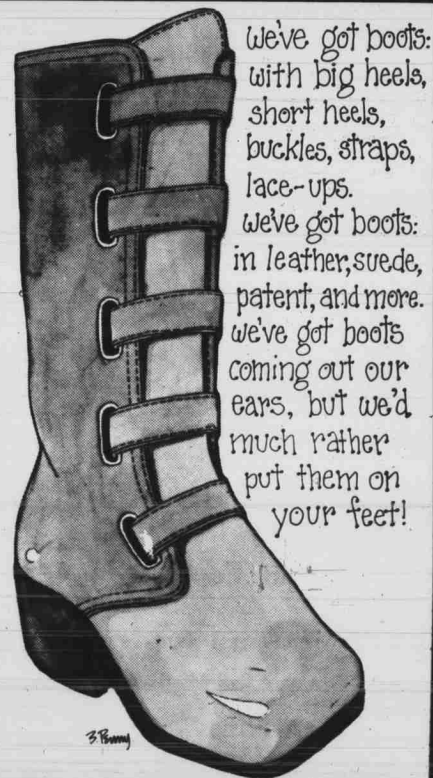 We've got boots:
with big heels,
short heels,
buckles, straps,
lace-ups.
We've got boots:
in leather, suede,
patent, and more.
We've got boots
coming out our
ears, but we'd
much rather
put them on
your feet!